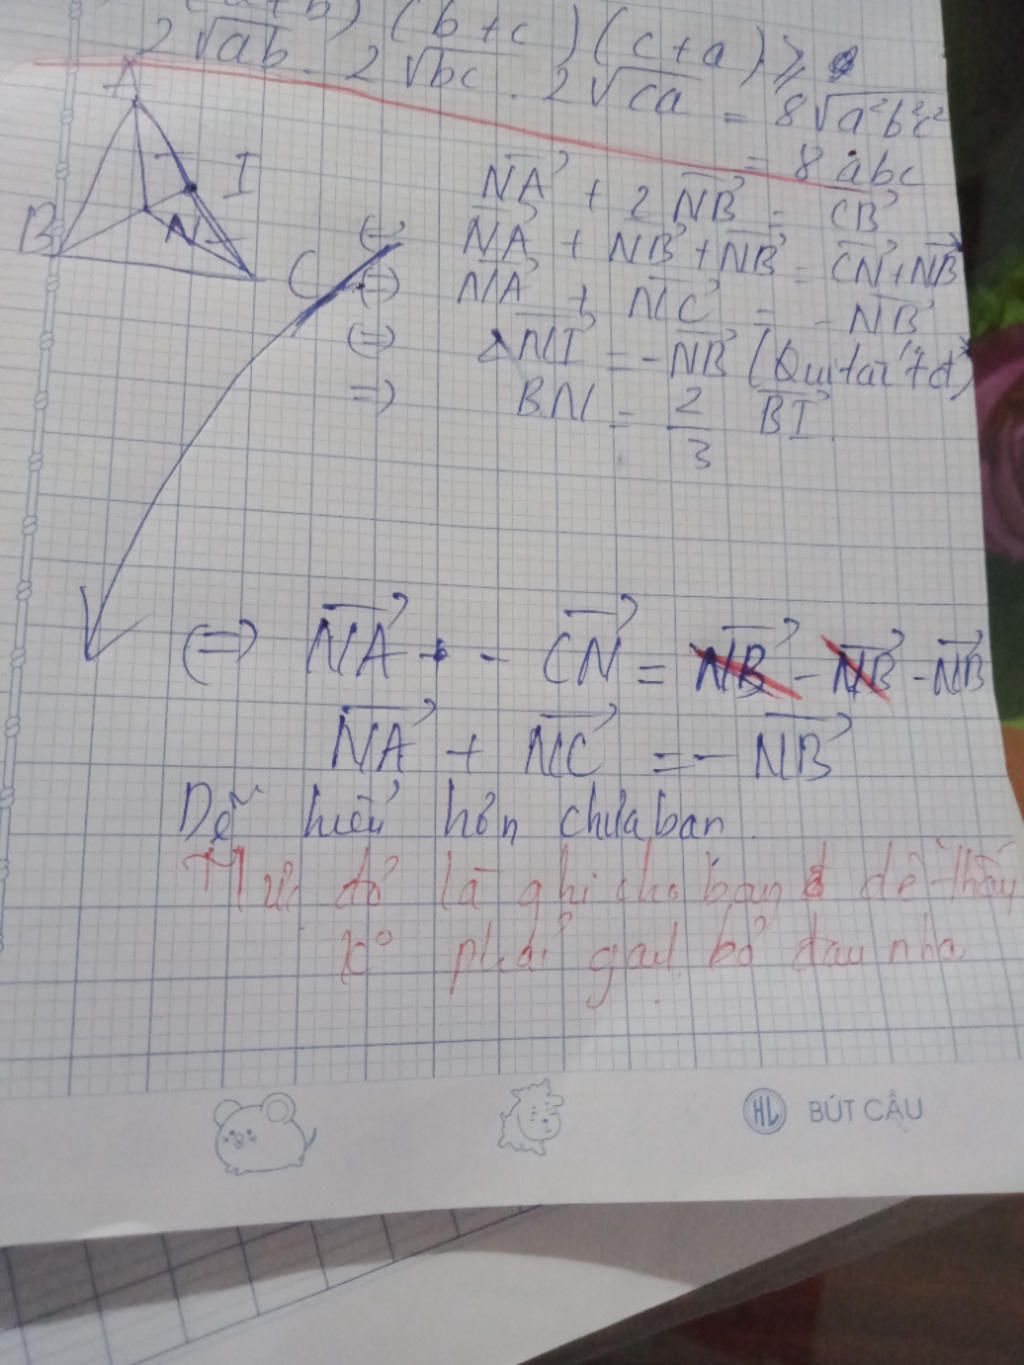 (b+c) (c+a) ≥
2√ab . 2√bc . 2√ca = 8√a²b²c²
= 8abc
A
I
B
N
C
NA⃗ + 2NB⃗ = CB⃗
(=) NA⃗ + NB⃗ + NB⃗ = CN⃗ + NB⃗
(=) NA⃗ + NC⃗ = - NB⃗
(=) 2NI⃗ = - NB⃗ (Qui tắc t đ)
=) BN⃗ = 2/3 BI⃗
(=) NA⃗ - CN⃗ = NB⃗ - NB⃗ - NB⃗
NA⃗ + NC⃗ = - NB⃗
Dễ hiểu hơn chưa bạn.
Mực đỏ là ghi cho bạn dễ thấy
k° phải gạch bỏ đâu nha
HL BÚT CẦU